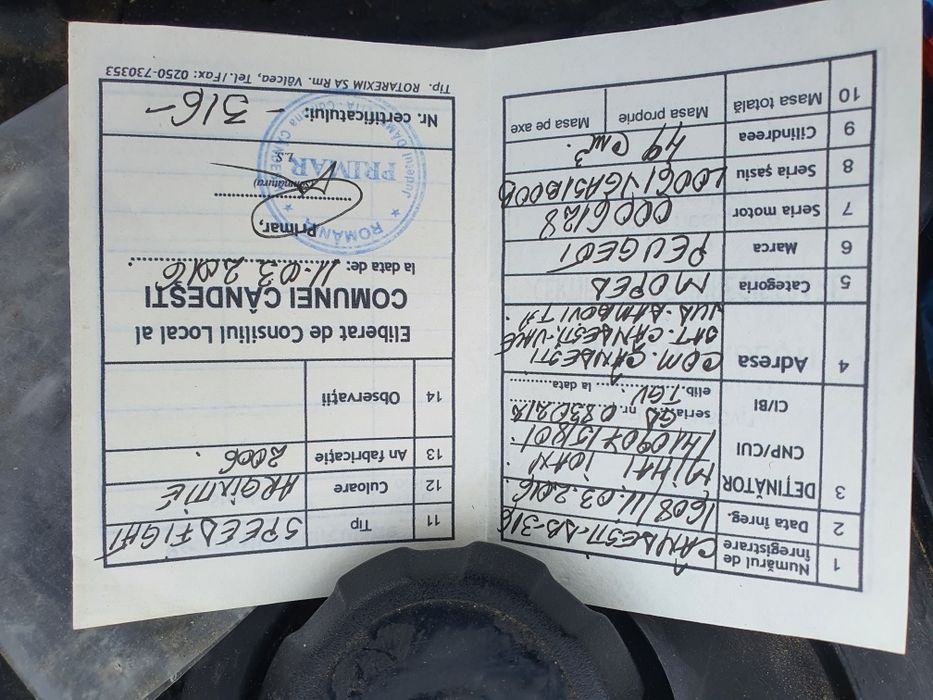 1 Numărul de înregistrare CÂNDEȘTI-DB-316
2 Data înreg. 1608/11.03.2016
3 DEȚINĂTOR MIHAI IOAN
CNP/CUI
CI/BI seria nr. 0830218
elib. TGV. la data
4 Adresa COM. CÂNDEȘTI
SAT. CÂNDEȘTI-VALE
JUD. DÂMBOVIȚA
5 Categoria MOPED
6 Marca PEUGEOT
7 Seria motor 0006128
8 Seria șasiu
9 Cilindreea 49 cm³.
10 Masa totală Masa proprie Masa pe axe
11 Tip SPEEDFIGHT
12 Culoare ARGINTIE
13 An fabricație 2006.
14 Observații
Eliberat de Consiliul Local al
COMUNEI CÂNDEȘTI
la data de: 11.03.2016
Primar,
(semnătura)
L.S.
ROMÂNIA
PRIMAR
Nr. certificatului: - 316 -
Tip. ROTAREXIM SA Rm. Vâlcea, Tel./Fax: 0250-730353